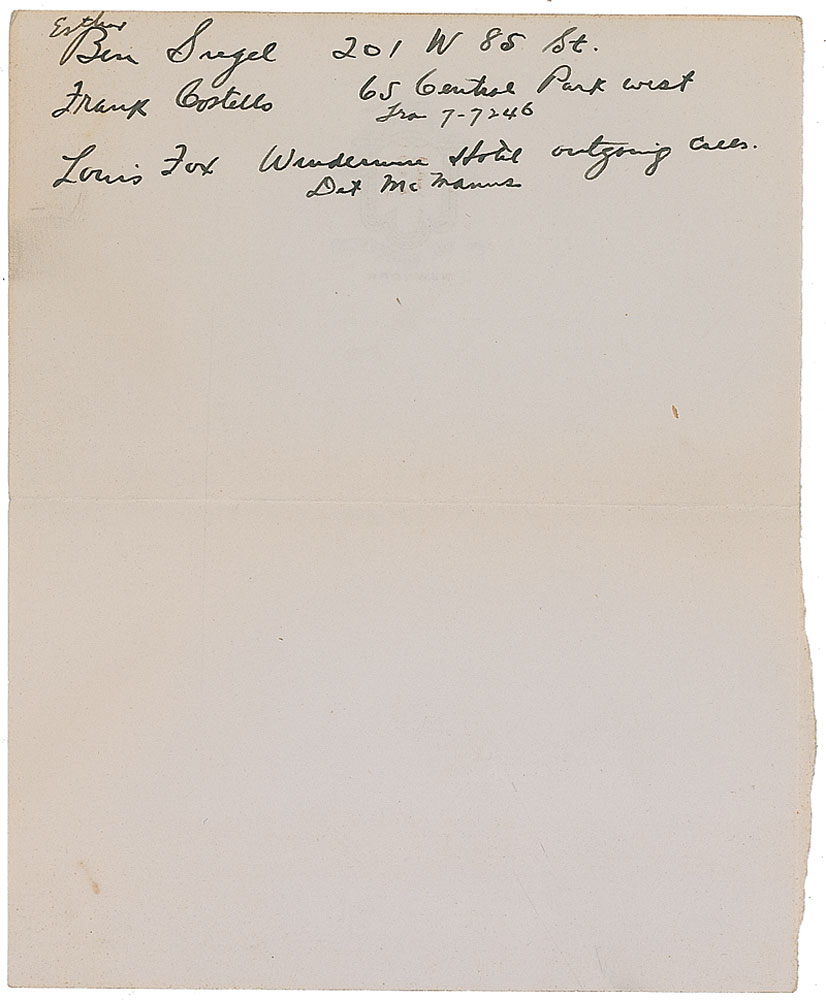 Esther
Ben Siegel 201 W 85 St.
Frank Costello 65 Central Park west
Tra 7-7246
Louis Fox Windermere Hotel outgoing calls.
Det McManus